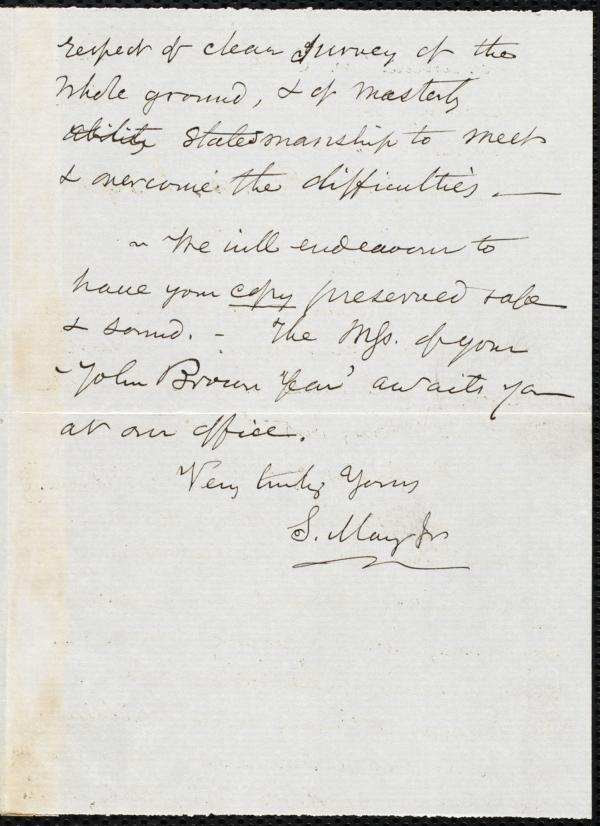 respect of clear survey of the
whole ground, & of masterly
ability statesmanship to meet
& overcome the difficulties. —
~ We will endeavour to
have your copy preserved safe
& sound. - The Mss. of your
'John Brown Year' awaits you
at our office.
Very truly Yours
S. May Jr